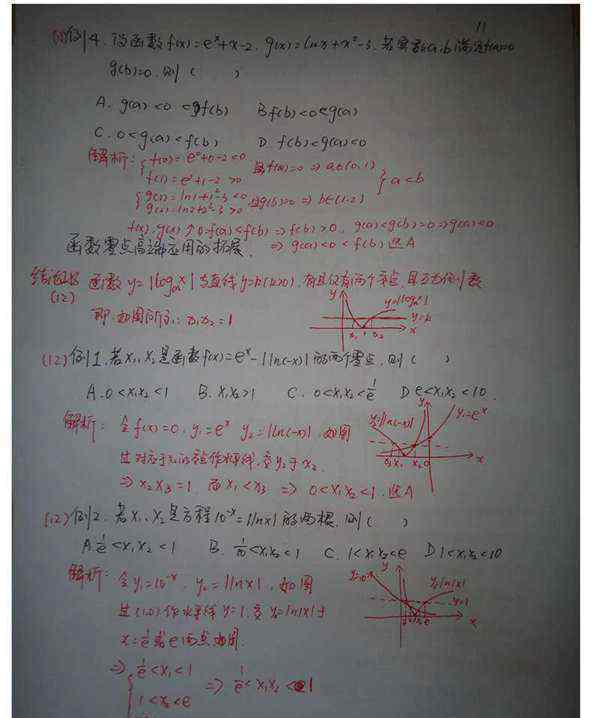 11
(11)例4.设函数f(x)=eˣ+x-2, g(x)=lnx+x²-3.若实数a,b满足f(a)=0
g(b)=0,则( )
A. g(a)<0<f(b) B. f(b)<0<g(a)
C. 0<g(a)<f(b) D. f(b)<g(a)<0
解析: { f(0)=e⁰+0-2<0 且f(a)=0 ⇒ a∈(0,1)
f(1)=e¹+1-2>0 } a<b
{ g(1)=ln1+1²-3<0 且g(b)=0 ⇒ b∈(1,2)
g(2)=ln2+2²-3>0
f(x),g(x)↑ 0=f(a)<f(b)⇒f(b)>0, g(a)<g(b)=0⇒g(a)<0
函数零点高端应用的拓展. ⇒ g(a)<0<f(b) 选A
结论 函数 y=|logₐx|与直线y=k(k>0),有且仅有两个交点,且互为倒数
(12)
即:如图所示: x₁x₂=1
y y=|logₐx|
y=k
x₁ 1 x₂ x
(12)例1.若x₁,x₂是函数f(x)=eˣ-|ln(-x)|的两个零点,则( )
A.0<x₁x₂<1 B. x₁x₂>1 C. 0<x₁x₂<1/e D e<x₁x₂<10.
解析: 令f(x)=0, y₁=eˣ y₂=|ln(-x)|,如图
过对应于x₂的点作水平线,交y₂于x₃
⇒ x₂x₃=1, 而x₁<x₃ ⇒ 0<x₁x₂<1,选A
y₂=|ln(-x)| y y₁=eˣ
x₂ 0 x
(12)例2.若x₁,x₂是方程10⁻ˣ=|lnx|的两根,则( )
A.1/e<x₁x₂<1 B. 1/10<x₁x₂<1 C. 1<x₁x₂<e D 1<x₁x₂<10
解析: 令y₁=10⁻ˣ, y₂=|lnx|,如图
过(0,1)作水平线y=1,交y₂=|lnx|于
x=1/e或e两点如图.
y y₂=|lnx|
y=1
x
⇒ { 1/e<x₁<1 ⇒ 1/e<x₁x₂<1
1<x₂<e